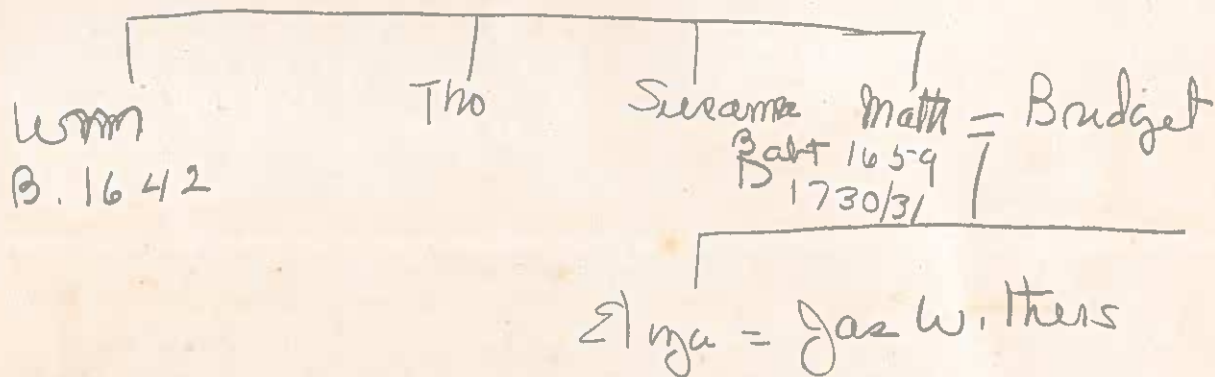 Wm Tho Susanna Matth = Bridget
B. 1642 Bapt 1659
D 1730/31
Eliza = Jas Withers